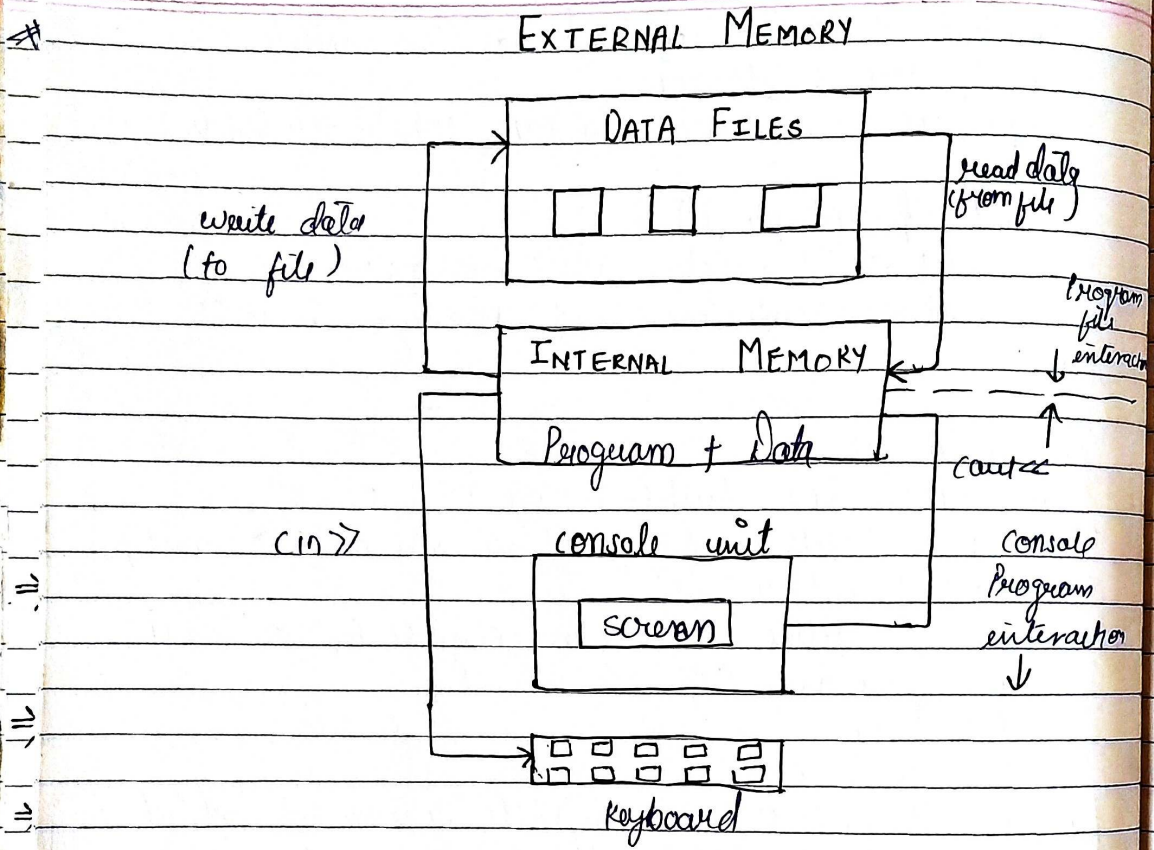 EXTERNAL MEMORY
DATA FILES
read data
(from file)
write data
(to file)
Program
file
interaction
INTERNAL MEMORY
Program + Data
cout<<
cin>>
console unit
screen
Console
Program
interaction
Keyboard